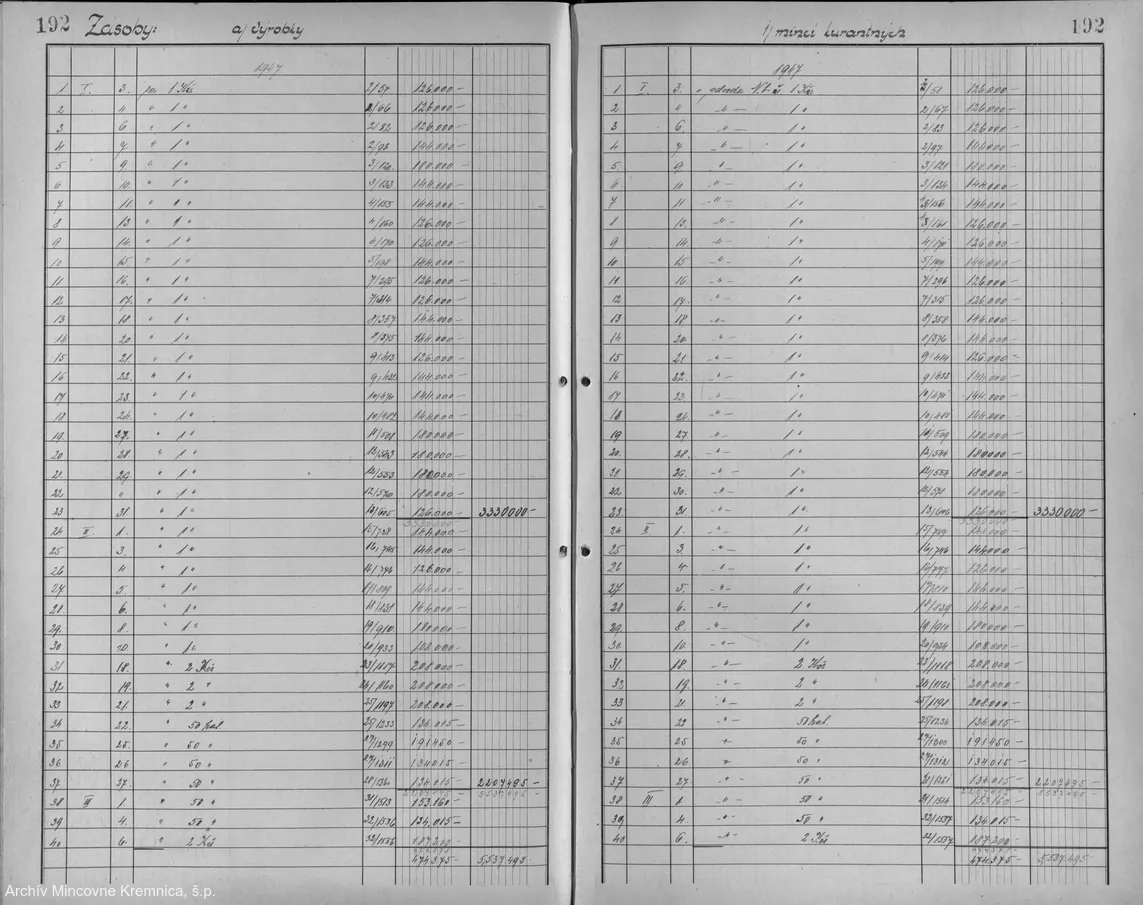 192 Zásoby: a) výrobky
1947
1 I. 3. pa 1 Kčs 2/57 126.000—
2 4. " 1 " 2/66 126.000—
3 6 " 1 " 2/82 126.000—
4 7. " 1 " 2/98 144.000—
5 9. " 1 " 3/120 180.000—
6 10. " 1 " 3/133 144.000—
7 11. " 1 " 4/155 144.000—
8 13 " 1 " 4/160 126.000—
9 14. " 1 " 4/170 126.000—
10 15 " 1 " 5/198 144.000—
11 16. " 1 " 7/295 126.000—
12 17. " 1 " 7/314 126.000—
13 18 " 1 " 8/357 144.000—
14 20 " 1 " 8/375 144.000—
15 21. " 1 " 9/413 126.000—
16 22. " 1 " 9/432 144.000—
17 23. " 1 " 10/470 144.000—
18 24. " 1 " 144.000—
19. 27. " 1 " 11/508 180.000—
20 28 " 1 " 12/543 180.000—
21. 29. " 1 " 12/553 180.000—
22. " " 1 " 12/570 180.000—
23 31. " 1 " 13/605 126.000— 3330000—
3330000
24 II. 1. " 1 " 15/738 144.000—
25 3. " 1 " 16/745 144.000—
26 4 " 1 " 16/746 126.000—
27 5. " 1 " 144.000—
28 6. " 1 " 18/838 144.000—
29. 8. " 1 " 19/910. 180.000—
30 10. " 1 " 20/933 108.000—
31 18. " 2 Kčs 23/1167 208.000—
32 19. " 2 " 24/1160 208.000—
33 21. " 2 " 25/1197 208.000—
34 22. " 50 hal. 25/1233 134.015—
35 25. " 50 " 27/1299 191450—
36 26 " 50 " 27/1311 134015—
37. 27. " 50 " 28/1350 134.015— 2207495—
2207495 5537495
38 III 1. " 50 " 31/1513 153.160—
39 4. " 50 " 32/1536 134.015—
40 6. " 2 Kčs 32/1556 187.200—
474375 5,537.495
1) mincí kurantných 192
1947
1 I. 3. " odvoda N.b.č. 1 Kčs 2/58 126.000—
2 " —"— 1 " 2/67 126.000—
3 6. —"— 1 " 2/83 126.000—
4 7 —"— 1 " 2/97 144.000—
5 9 —"— 1 " 3/121 180.000—
6 10 —"— 1 " 3/134 144.000—
7 11. —"— 1 " 3/156 144.000—
8 13. —"— 1 " 3/161 126.000—
9 14. —"— 1 " 4/171 126.000—
10 15 —"— 1 " 5/199 144.000—
11 16 —"— 1 " 7/296 126.000—
12 17. —"— 1 " 7/315 126.000—
13 18 —"— 1 " 8/358 144.000—
14 20. —"— 1 " 8/376 144.000—
15 21 —"— 1 " 9/414 126.000—
16 22. —"— 1 " 9/433 144.000—
17 23. —"— 1 " 10/471 144.000—
18 24. —"— 1 " 144.000—
19 27 —"— 1 " 11/509 180.000—
20. 28. —"— 1 " 12/544 180000—
21. 29. —"— 1 " 12/554 180.000—
22 30. —"— 1 " 12/571 180.000—
23. 31. —"— 1 " 13/606 126.000— 3330.000—
3330000
24 II. 1. —"— 1 " 15/739 144.000—
25 3. —"— 1 " 16/746 144.000—
26 4 —"— 1 " 16/747 126.000—
27 5. —"— 1 " 144.000—
28 6. —"— 1 " 18/839 144.000—
29. 8. —"— 1 " 180.000—
30. 10. —"— 1 " 20/934 108.000—
31. 18 —"— 2 Kčs 23/1168 208.000—
32 19. —"— 2 " 24/1161 208.000—
33 21. —"— 2 " 25/1198 208.000—
34 22 —"— 50 hal. 25/1234 134.015—
35 25 " 50 " 27/1300 191450—
36 26 " 50 " 27/1312 134.015—
37 27 —"— 50 " 28/1351 134.015— 2207495—
2207495 5537495
38 III 1. —"— 50 " 31/1514 153160—
39 4. —"— 50 " 32/1537 134.015—
40 6. —"— 2 Kčs 32/1557 187.200—
474375— 5,537.495
Archív Mincovne Kremnica, š.p.